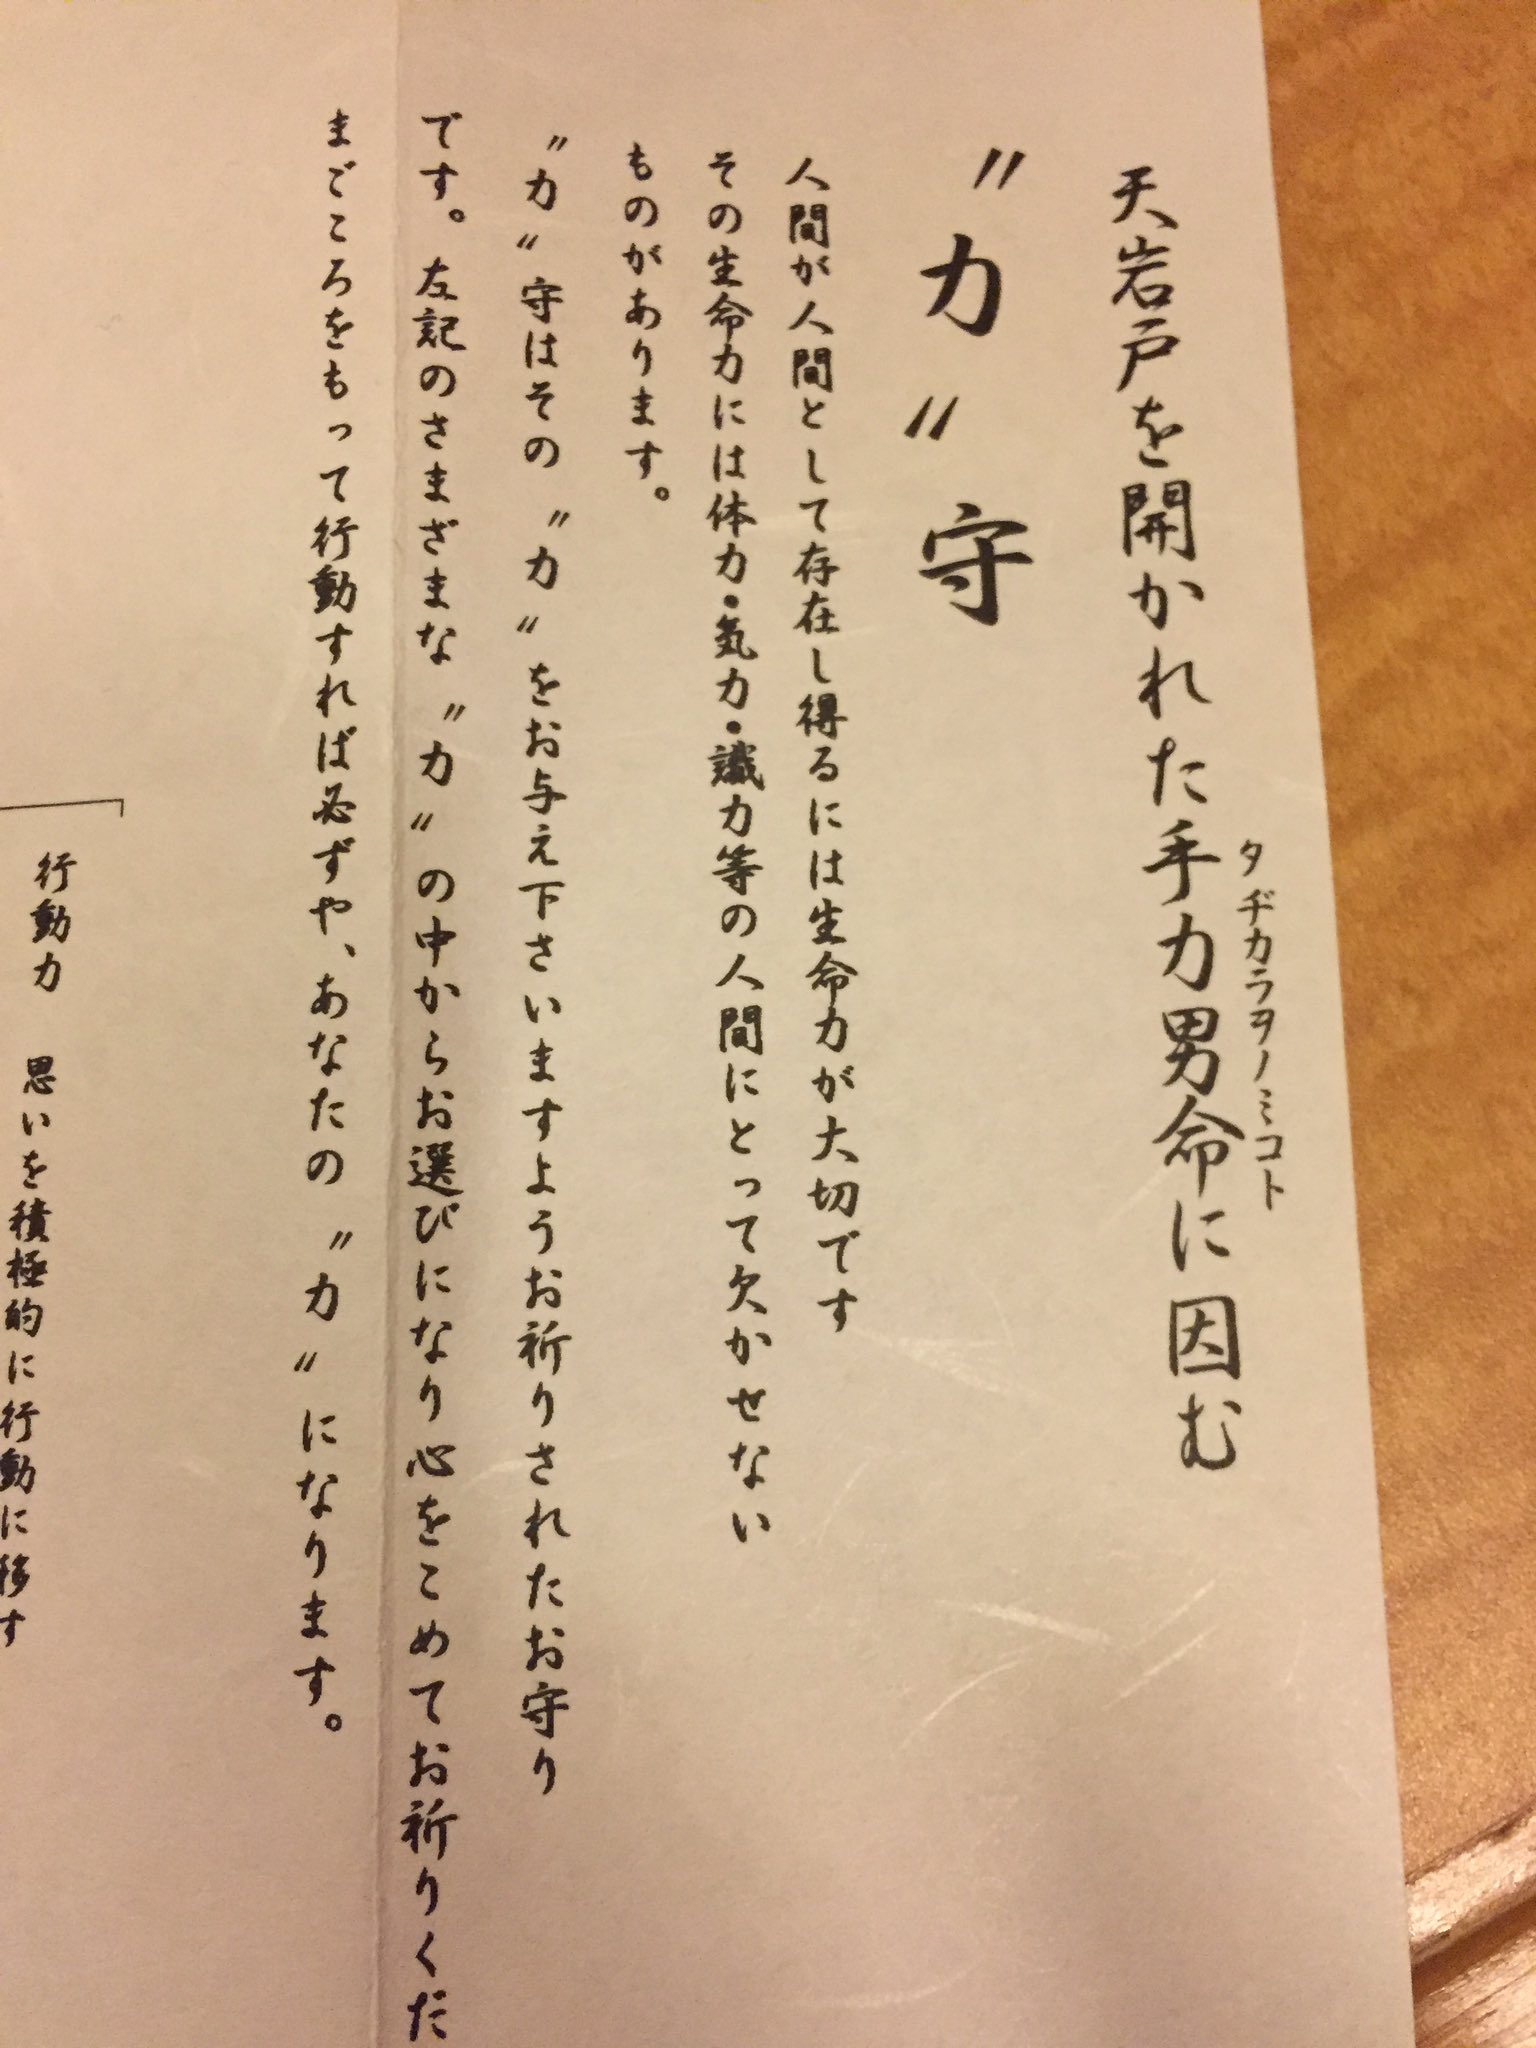 天岩戸を開かれた手力男命に因む
タヂカラヲノミコト
〝力〟守
人間が人間として存在し得るには生命力が大切です
その生命力には体力・気力・識力等の人間にとって欠かせない
ものがあります。
〝力〟守はその〝力〟をお与え下さいますようお祈りされたお守り
です。左記のさまざまな〝力〟の中からお選びになり心をこめてお祈りくだ
まごころをもって行動すれば必ずや、あなたの〝力〟になります。
行動力 思いを積極的に行動に移す